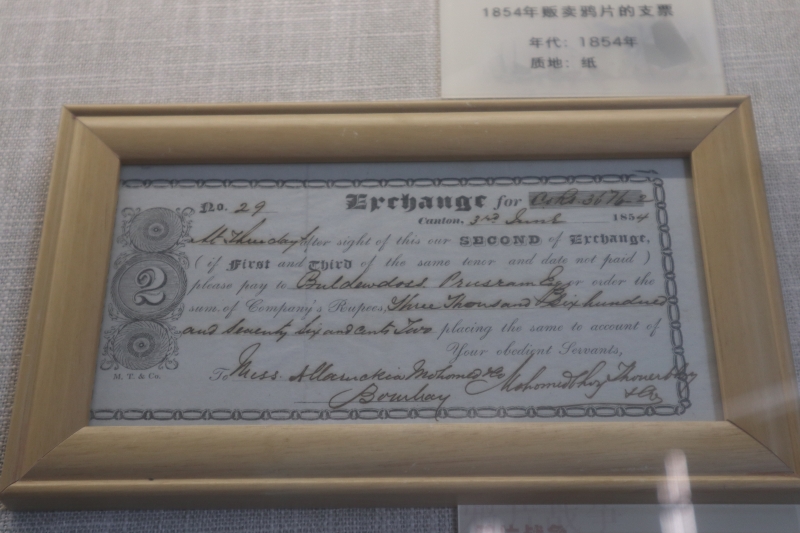 1854年贩卖鸦片的支票
年代：1854年
质地：纸
No. 29 Exchange for Co's Rs 3676-2
Canton, 3rd June 1854
At Thirty days after sight of this our SECOND of Exchange,
( if First and Third of the same tenor and date not paid )
please pay to Buldewdoss Prusram Esqr or order the
sum of Company's Rupees, Three Thousand Six hundred
and seventy six and cents Two placing the same to account of
Your obedient Servants,
2
M. T. & Co.
To Mess. Allarukia Mohomed & Co
Bombay